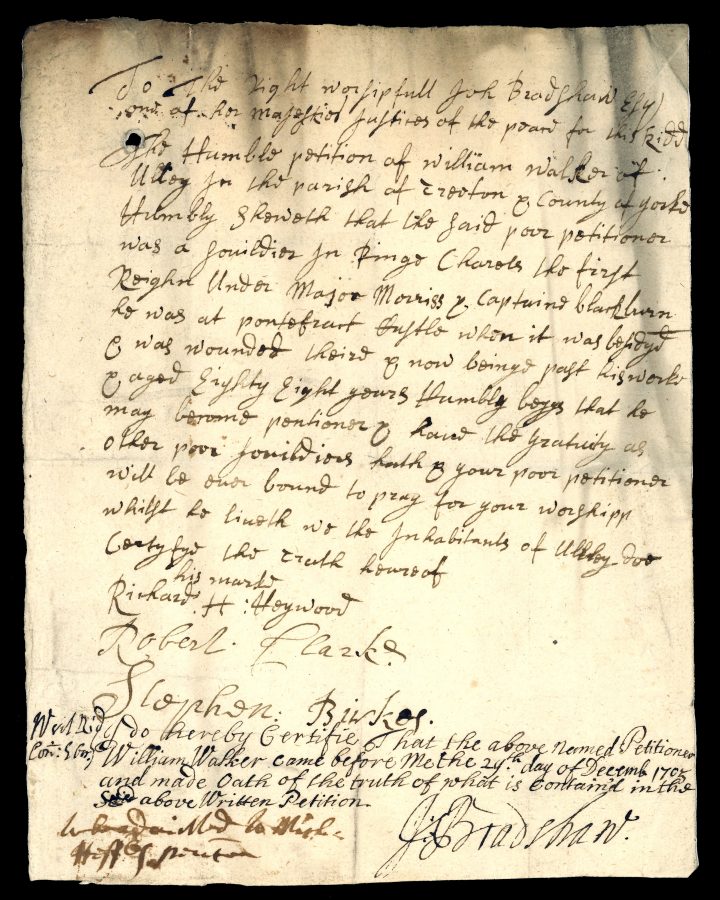 To The right worshipfull Joh Bradshaw Esqr
one of her majesties Justices of the peace for this Ridd
The Humble petition of william walker of
Ulley In the parish of Treeton & County of yorke
Humbly Sheweth that the said poor petitioner
was a souildier In Kinge Charels the first
Reighn Under Major Morriss & Captaine blackburn
he was at pontefract Kastle when it was besidgd
& was wounded theire & now beinge past his worke
& aged Eighty Eight years Humbly begs that he
may become pentioner & have the gratuity as
other poor souildiers hath & your poor petitioner
will be ever bound to pray for your worshipp
whilst he liveth we the Inhabitants of Ulley doe
Certyfye the Truth heareof
his marke
Richard H : Heywood
Robert. Clarke.
Stephen: Birkes.
West Rid
Com: Ebor;
I do hereby Certifie That the above Named Petitioner
William Walker came before Me the 29th. day of Decemb 1702
and made Oath of the truth of what is Contain'd in the
above Written Petition.
J: Bradshaw.
to be